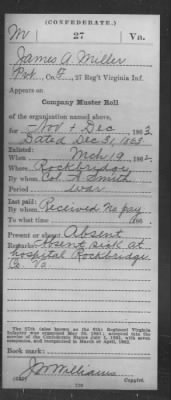 (CONFEDERATE.)
M 27 Va.
James A. Miller
Pvt, Co. F, 27 Reg't Virginia Inf.
Appears on
Company Muster Roll
of the organization named above,
for Nov & Dec, 1863.
Dated Dec 31, 1863
Enlisted:
When Mch 19, 1862
Where Rockbridge
By whom Col. A. Smith
Period war
Last paid:
By whom Received No pay
To what time 186
Present or absent Absent
Remarks: Absent sick at
hospital Rockbridge
Co Va
The 27th Regiment Virginia
Infantry was organized May 30, 1861; accepted into the
service of the Confederate States July 1, 1861, with seven
companies, and reorganized in March or April, 1862.
Book mark:
J W Williams
Copyist.